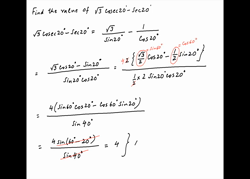 Find the value of √3 cosec20° - Sec20°
√3 cosec20° - Sec20° = √3/Sin20° - 1/Cos20°
= (√3 Cos20° - Sin20°)/(Sin20° Cos20°) = 2{√3/2 Cos20° - 1/2 Sin20°}/(1/2 × 2 Sin20° Cos20°)
= 4(Sin60° Cos20° - Cos60° Sin20°)/Sin40°
= 4 Sin(60° - 20°)/Sin40° = 4